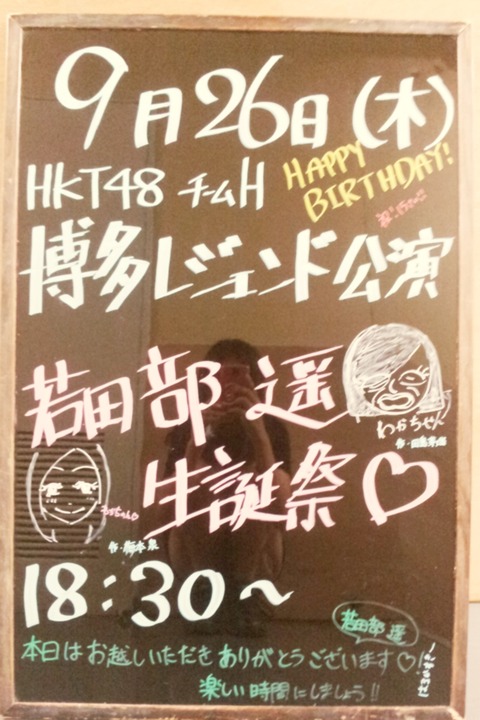 9月26日(木)
HKT48 チームH
HAPPY
BIRTHDAY!
博多レジェンド公演
若田部 遥
わかちゃん
生誕祭♡
18:30~
若田部 遥
本日はお越しいただきありがとうございます♡
楽しい時間にしましょう!!